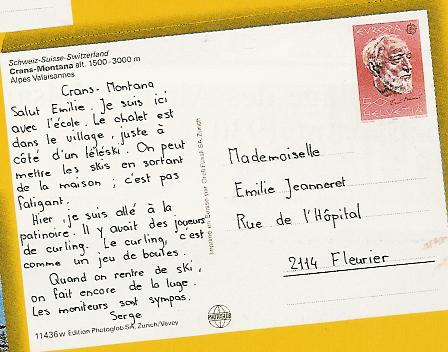 Schweiz-Suisse-Switzerland
Crans-Montana alt. 1500-3000 m
Alpes Valaisannes
Crans-Montana
Salut Emilie. Je suis ici
avec l'école. Le chalet est
dans le village, juste à
côté d'un téléski. On peut
mettre les skis en sortant
de la maison ; c'est pas
fatigant.
Hier, je suis allé à la
patinoire. Il y avait des joueurs
de curling. Le curling, c'est
comme un jeu de boules.
Quand on rentre de ski,
on fait encore de la luge.
Les moniteurs sont sympas.
Serge
11436w Edition Photoglob SA, Zürich/Vevey
Imprimé en Suisse par Orell Füssli SA, Zurich
PHOTOGLOB
EUROPA
50
HELVETIA
Mademoiselle
Emilie Jeanneret
Rue de l'Hôpital
2114 Fleurier